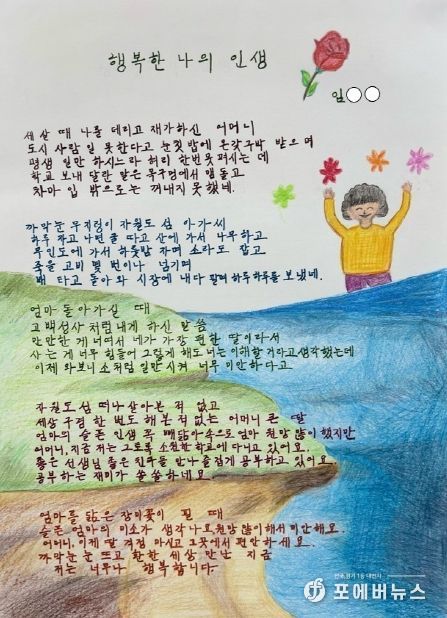 행복한 나의 인생
임○○
세살 때 나를 데리고 재가하신 어머니
도시 사람 일 못한다고 눈칫밥에 온갖구박 받으며
평생 일만 하시느라 허리 한번 못펴시는 데
학교 보내 달란 말은 목구멍에서 맴돌고
차마 입 밖으로는 꺼내지 못했네.
까막눈 무지렁이 자월도 섬 아가씨
하루 자고 나면 굴 따고 산에 가서 나무하고
무인도에 가서 하룻밤 자며 소라도 잡고
죽을 고비 몇 번이나 넘기며
배 타고 돌아와 시장에 내다 팔며 하루하루를 보냈네.
엄마 돌아가실 때
고백성사 처럼 내게 하신 말씀
만만한 게 너여서 네가 가장 편한 딸이라서
사는 게 너무 힘들어 그렇게 해도 너는 이해할 거라고 생각했는데
이제 와보니 소처럼 일만 시켜 너무 미안하다고
자월도 섬 떠나 살아본 적 없고
세상 구경 한 번도 해본 적 없는 어머니 큰 딸
엄마의 슬픈 인생 꼭 빼닮아 속으로 엄마 원망 많이 했지만
어머니, 지금 저는 그토록 소원한 학교에 다니고 있어요.
좋은 선생님 좋은 친구를 만나 즐겁게 공부하고 있어요.
공부하는 재미가 쏠쏠하네요.
엄마를 닮은 장미꽃이 필 때
슬픈 엄마의 미소가 생각나요. 원망 많이해서 미안해요.
어머니, 이제 딸 걱정 마시고 그곳에서 편안하세요.
까막눈 눈 뜨고 환한 세상 만난 지금
저는 너무나 행복합니다.
포에버뉴스